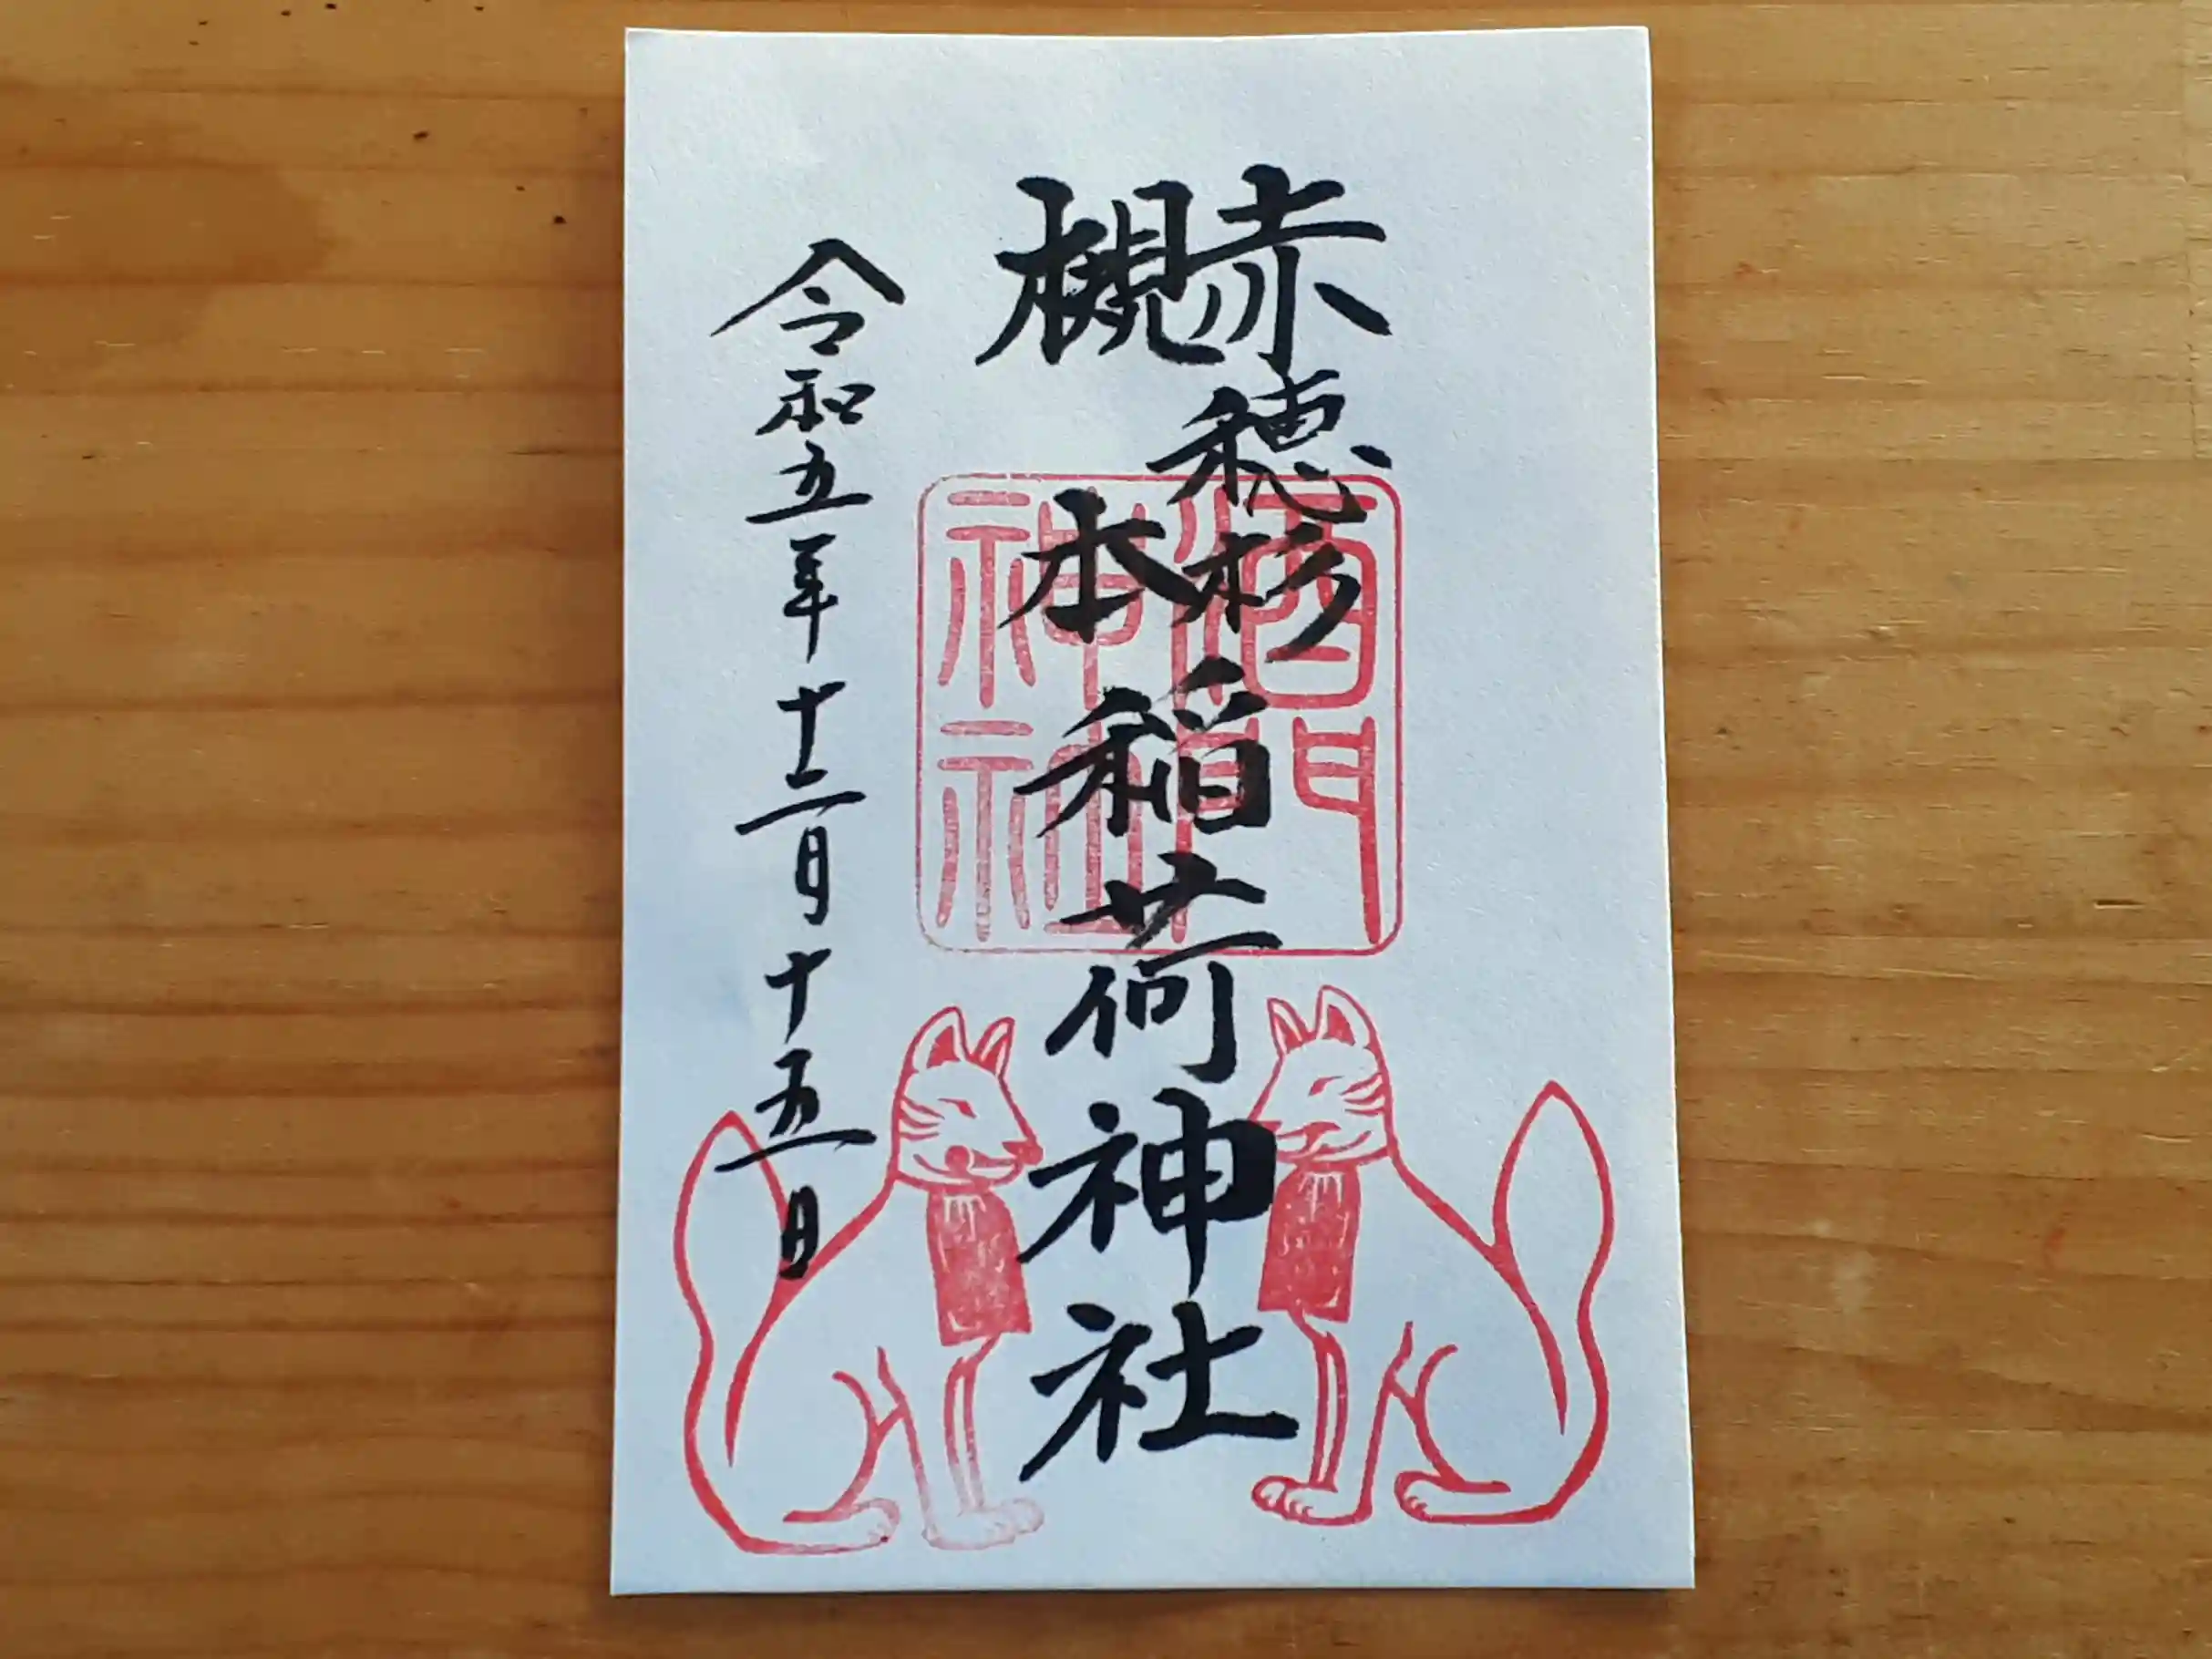 赤穂杉
槻本
稲荷神社
令和五年十二月十五日
酒門
神社